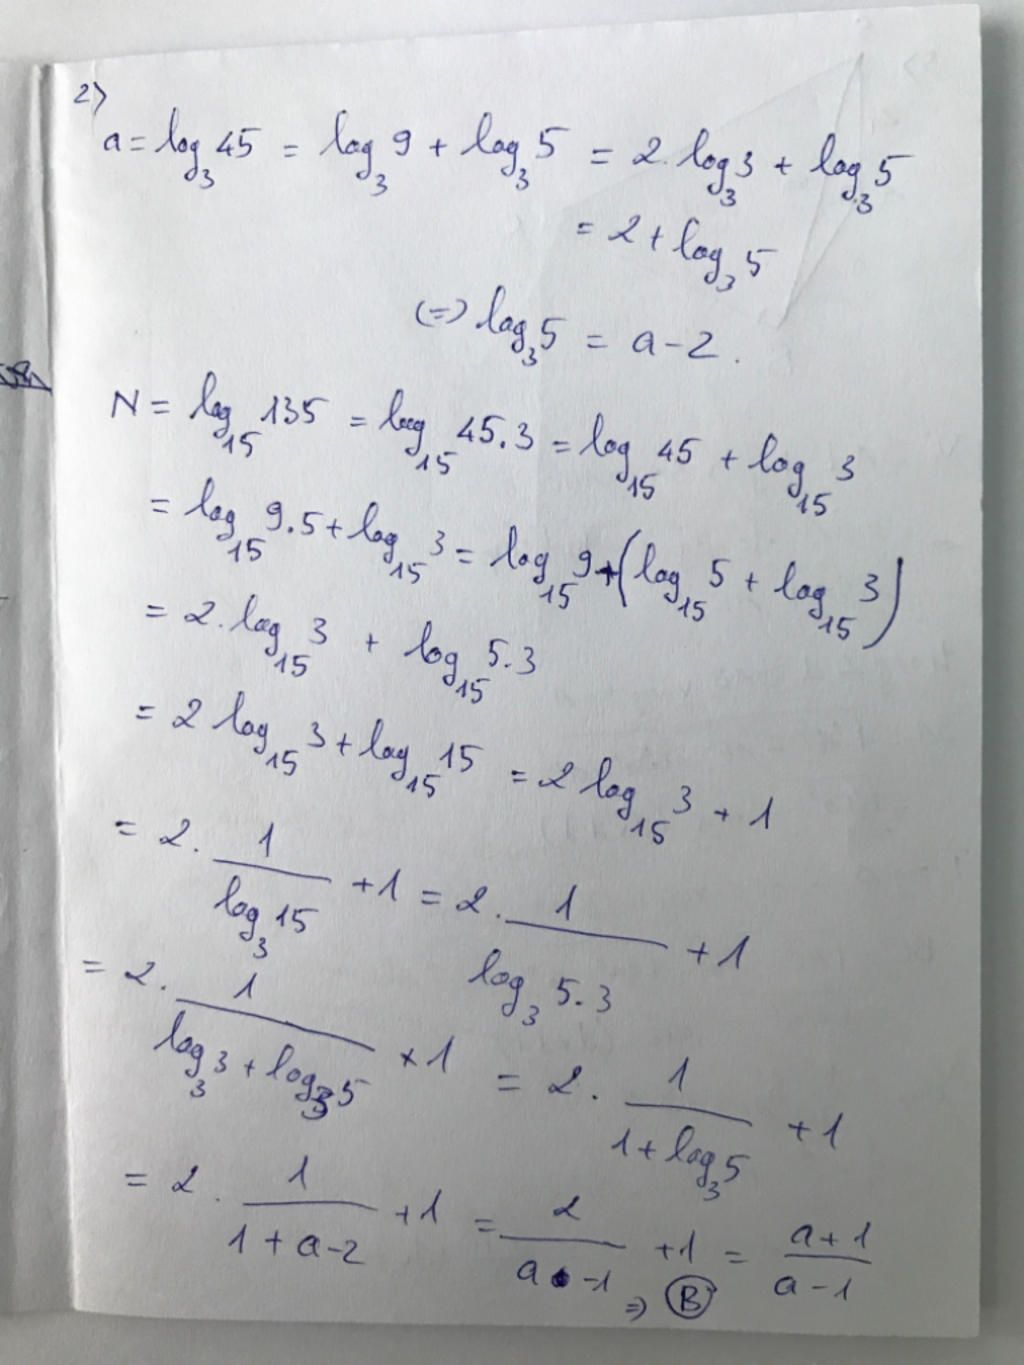 2>
a = log₃ 45 = log₃ 9 + log₃ 5 = 2. log₃ 3 + log₃ 5
= 2 + log₃ 5
(=) log₃ 5 = a - 2.
N = log₁₅ 135 = log₁₅ 45.3 = log₁₅ 45 + log₁₅ 3
= log₁₅ 9.5 + log₁₅ 3 = log₁₅ 9 + (log₁₅ 5 + log₁₅ 3)
= 2. log₁₅ 3 + log₁₅ 5.3
= 2 log₁₅ 3 + log₁₅ 15 = 2 log₁₅ 3 + 1
= 2. 1/(log₃ 15) + 1 = 2. 1/(log₃ 5.3) + 1
= 2. 1/(log₃ 3 + log₃ 5) + 1 = 2. 1/(1 + log₃ 5) + 1
= 2. 1/(1 + a - 2) + 1 = 2/(a - 1) + 1 = (a + 1)/(a - 1)
=> B